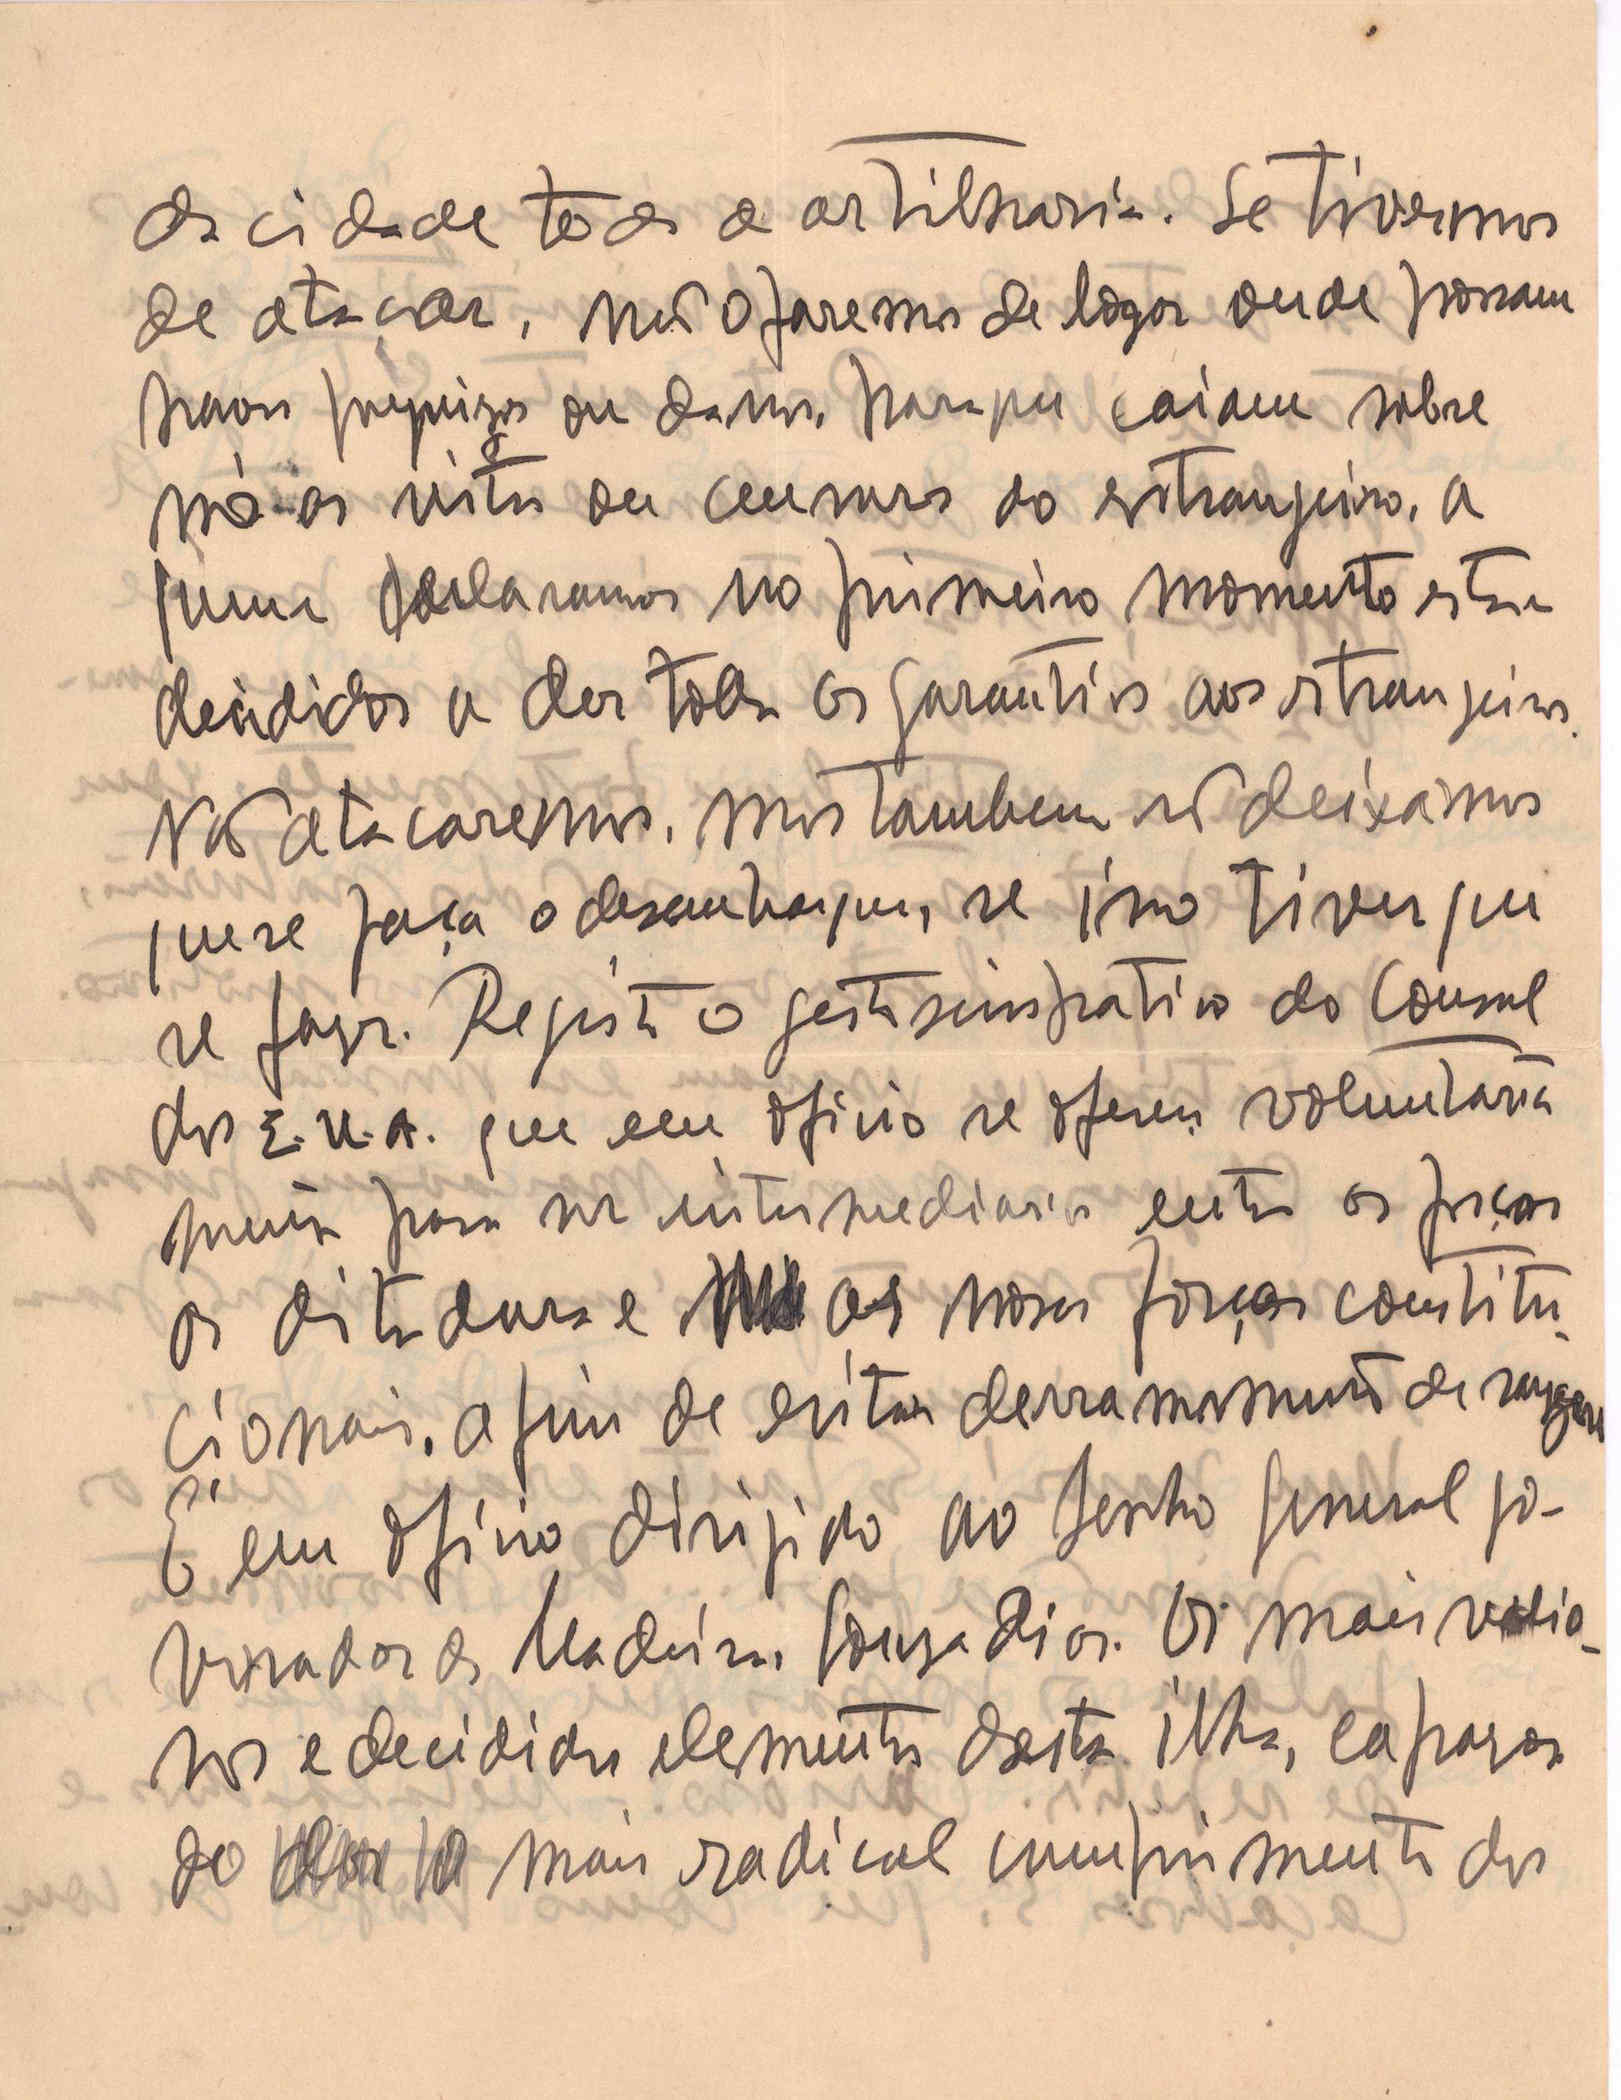 da cidade toda a artilharia. Se tivermos
de atacar, não o faremos de logar onde possam
haver prejuizos ou danos, para que caiam sobre
nós as iras ou censuras do estrangeiro, a
quem declaramos no primeiro momento estar
decididos a dar todas as garantias aos estrangeiros.
Não atacaremos, mas tambem não deixamos
que se faça o desembarque, se isso tiver que
se fazer. Registo o gesto simpatico do Consul
dos E.U.A. que em oficio se ofereceu voluntaria
mente para ser intermediario entre as forças
da ditadura e as nossas forças constitu-
cionais, a fim de evitar derramamento de sangue
É em oficio dirigido ao Senhor General go-
vernador da Madeira, Souza Dias. Os mais valio-
sos e decididos elementos desta ilha, capazes
do mais radical cumprimento dos